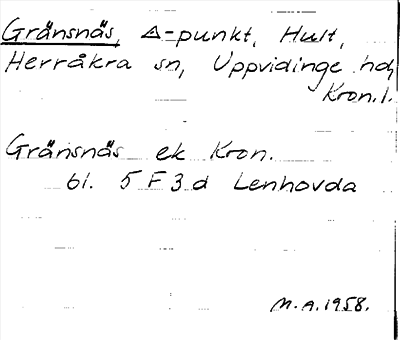 Gränsnäs, △-punkt, Hult,
Herråkra sn, Uppvidinge hd,
Kron. l.
Gränsnäs ek Kron.
61. 5 F 3 d Lenhovda
M.A. 1958.